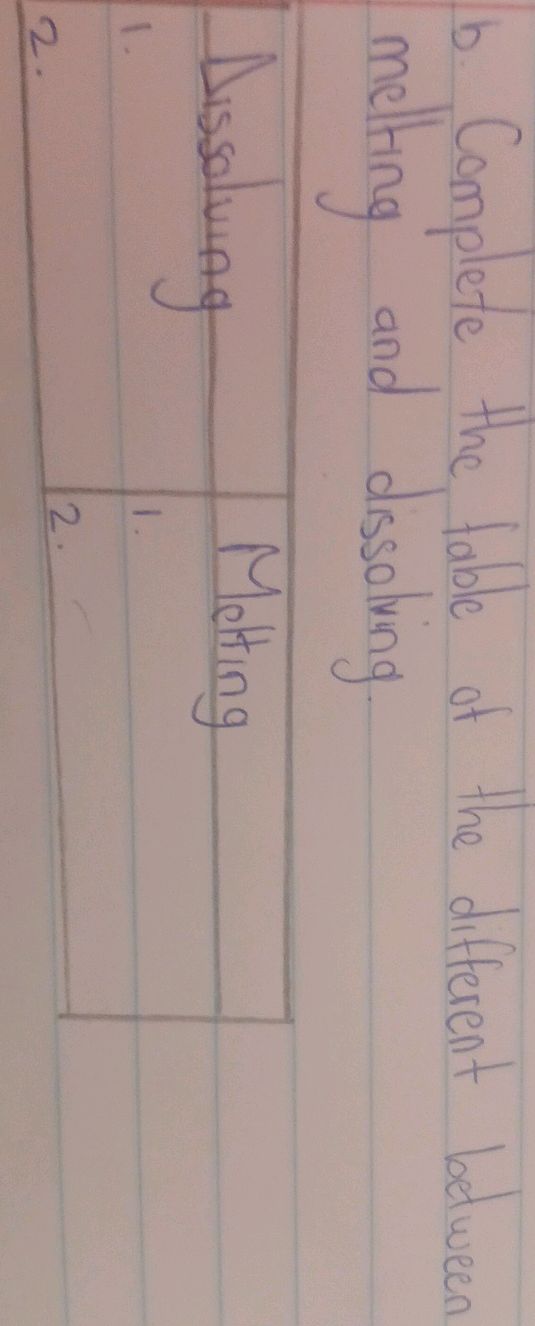 b. Complete the table of the different between
melting and dissolving.
Dissolving Melting
1. 1.
2. 2.